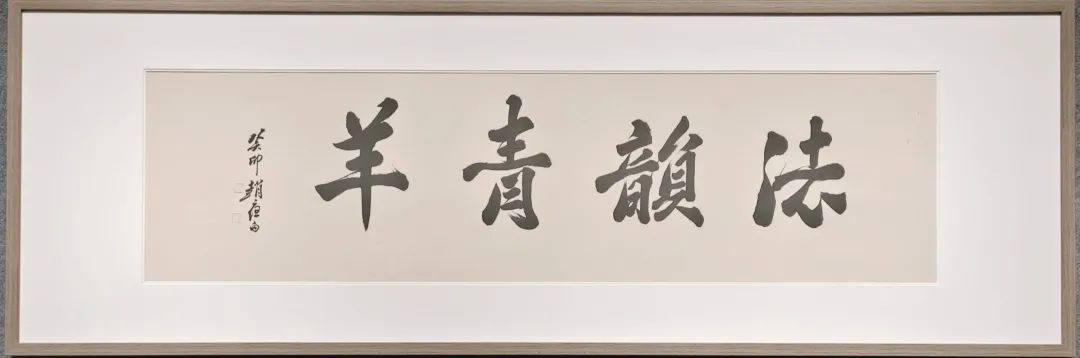 法韻青羊
癸卯趙